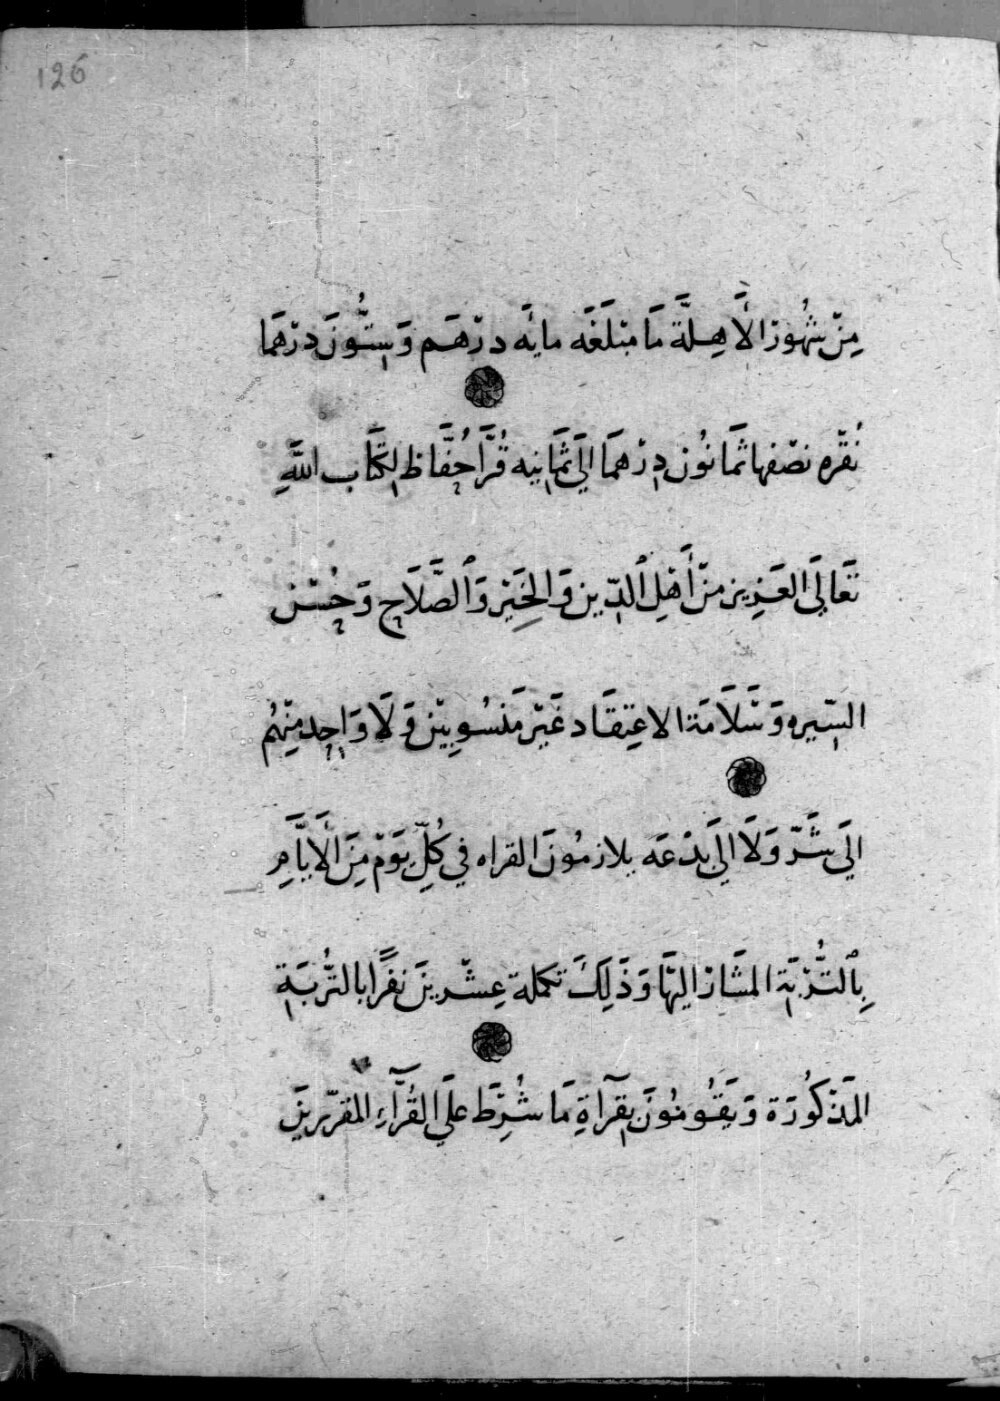 126
مِنْ شُهُورْ الأَهِلَّة مَا مَبْلَغَه مايَه درْهَم وَسِتُّونَ درْهَمَا
نُقْره نصْفها ثَمَانُون دِرْهمَا اليَ ثَمَانِيه قُرَّا حُفَّاظ لِكتَاب اللَّهِ
تَعَاليَ العَزِيز منْ أَهْلِ ٱلدِّين وَالخَيْر وَٱلصَّلَاح وَحُسْن
السِّيره وَسَلَامَة الاعِتِقَاد غَيْر مَنسُوبِيْن وَلَا وَاحِد مِنْهُم
اليَ شَرّ وَلَا اليَ بدْعَه يلازمُونَ القراه في كُلِّ يَوْم مِنَ الأَيَّامِ
بِٱلتُّرْبَة المشَارْ اليهَا وَذَلِكَ تكمله عِشْرينَ نفرًا بالتُّربَة
المَذْكُورَة وَيَقُومُونَ بِقرَآة مَا شُرِطَ علَيَ القُرَّآءِ المقرّرينَ